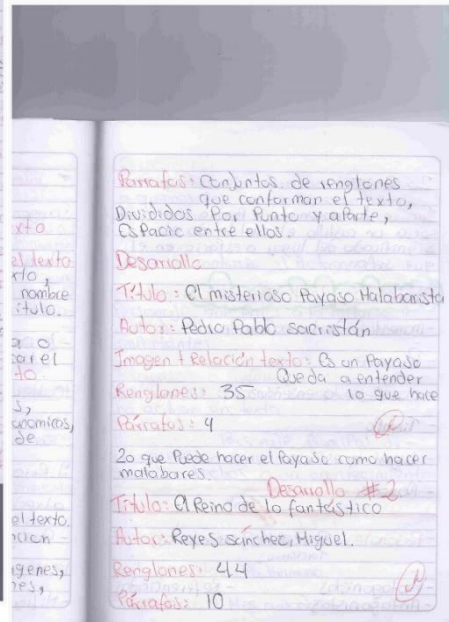 xto
el texto
xto,
nombre
ítulo.
a o
ar el
to.
s,
onomicos,
de
el texto.
ción -
ágenes,
nes,
Párrafos: Conjuntos de renglones
que conforman el texto,
Divididos Por Punto y aparte,
Espacio entre ellos.
Desarrollo
Título: El misterioso Payaso Malabarista
Autor: Pedro Pablo sacristán
Imagen + Relación texto: Es un Payaso
Que da a entender
Renglones: 35 lo que hace
Párrafos: 4
lo que Puede hacer el Payaso como hacer
malabares.
Desarrollo #2
Título: El Reino de lo fantástico
Autor: Reyes sánchez, Miguel.
Renglones: 44
Párrafos: 10